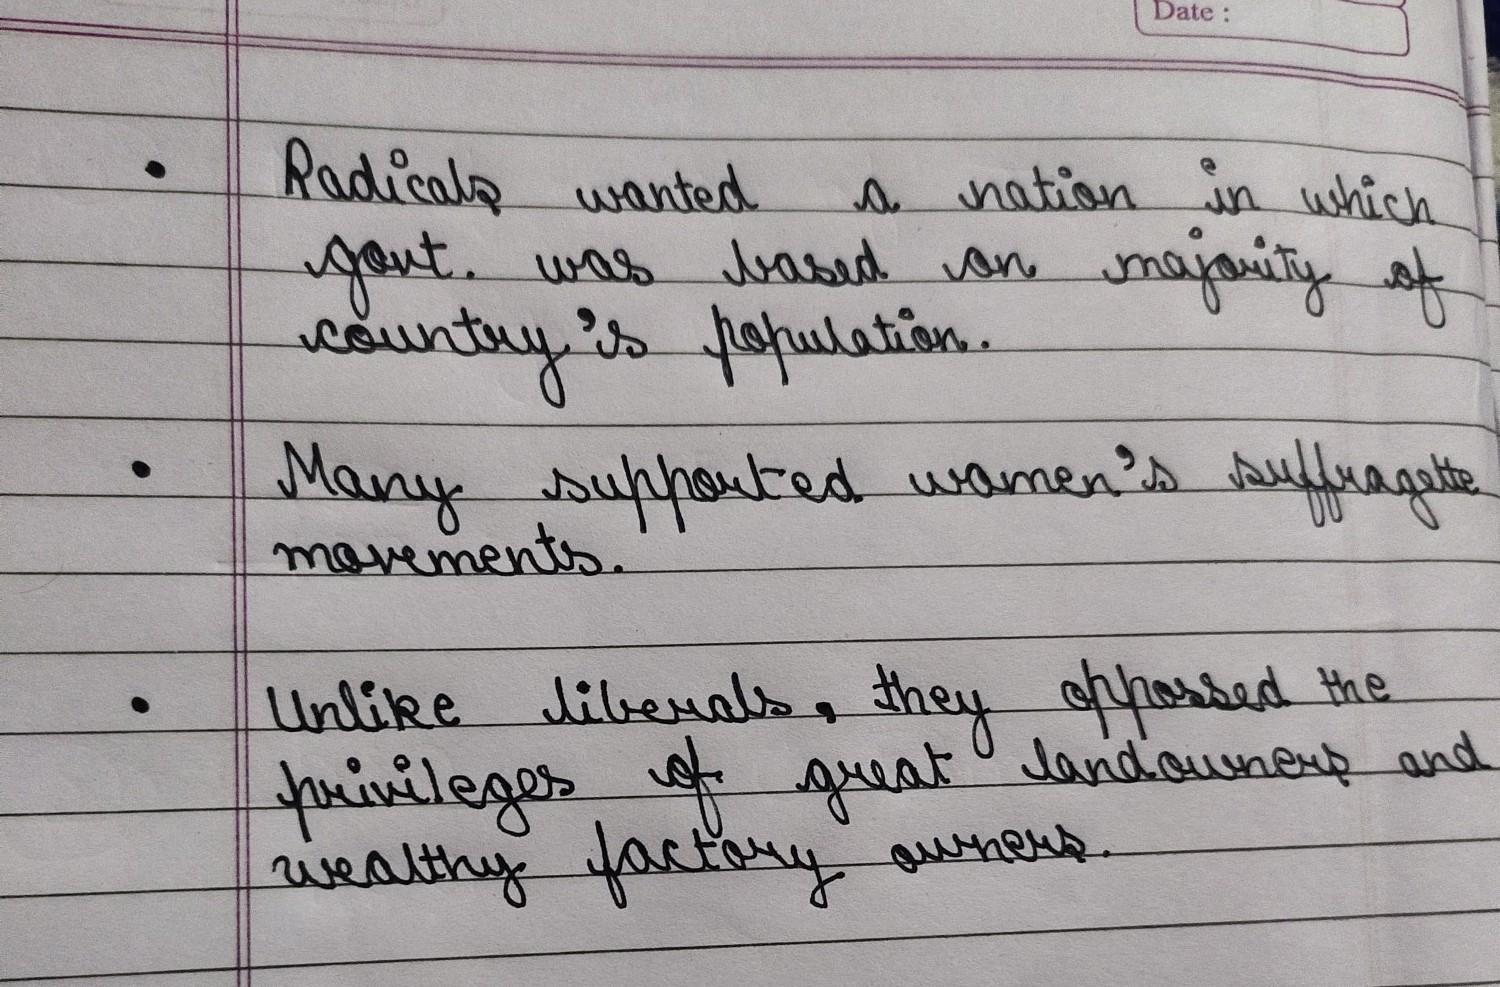 Date :
• Radicals wanted a nation in which
govt. was based on majority of
country's population.
• Many supported women's suffragette
movements.
• Unlike liberals, they oppossed the
privileges of great landowners and
wealthy factory owners.